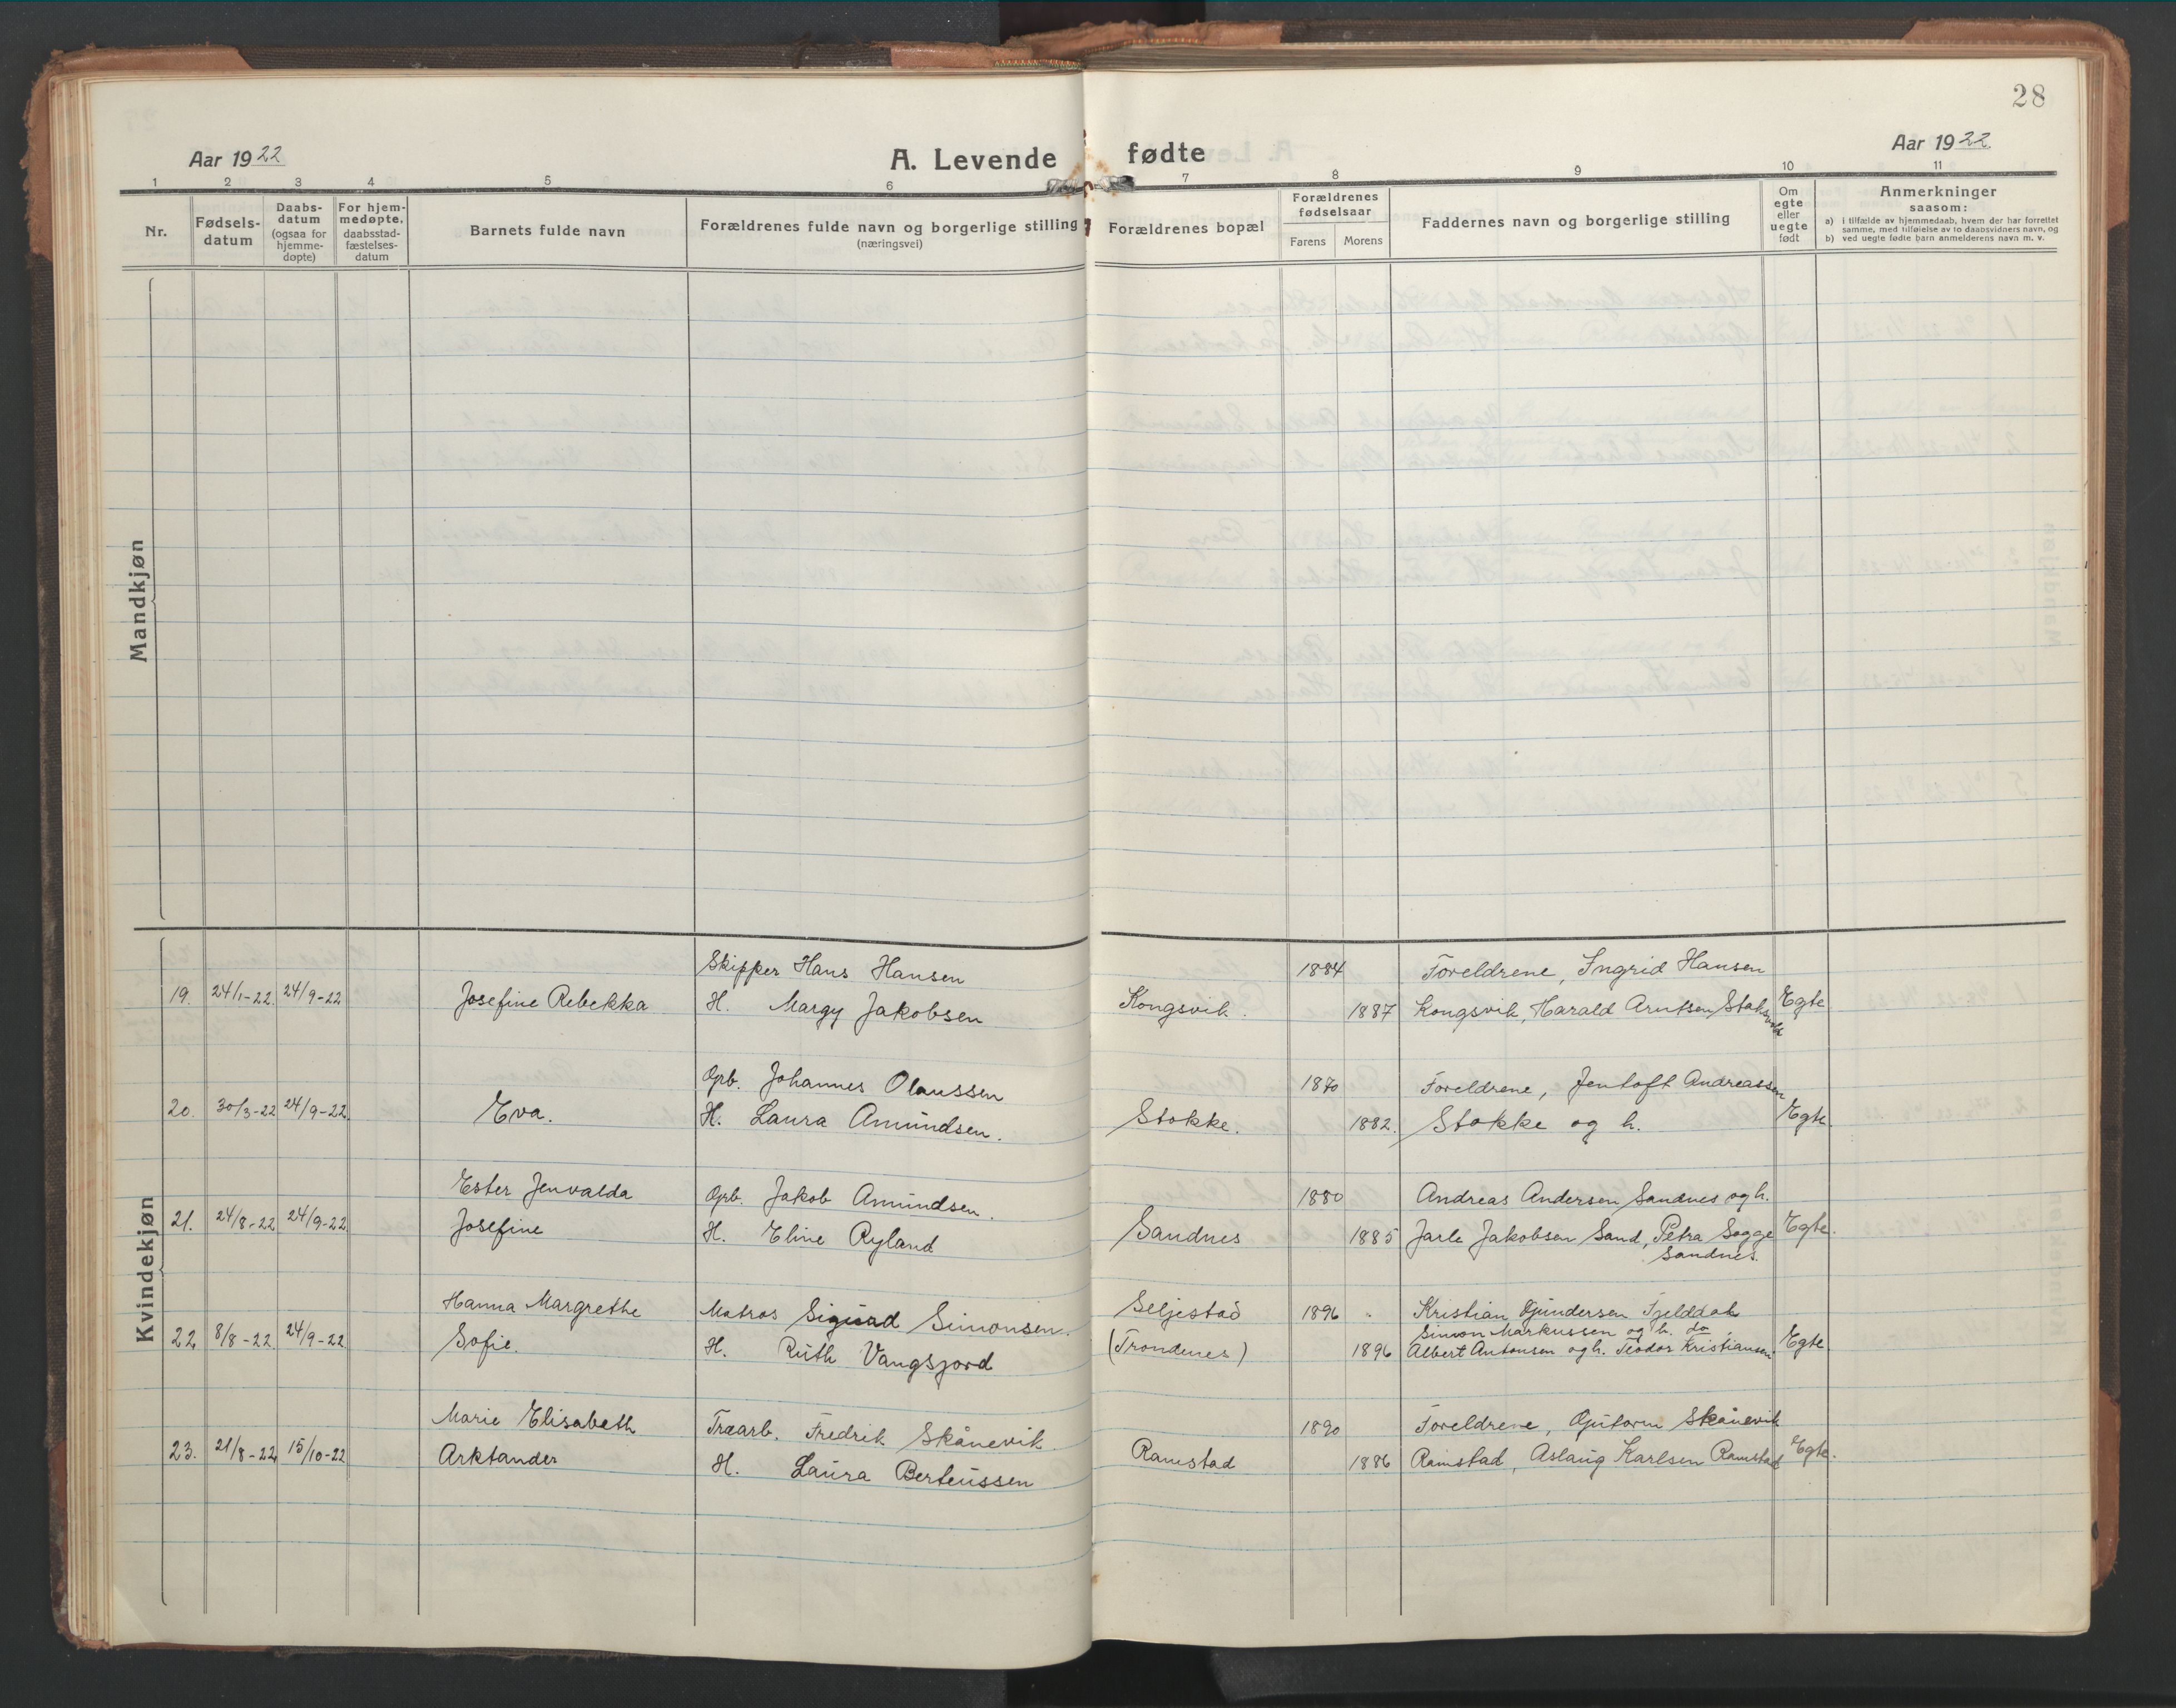 28
Aar 1922
A. Levende fødte
Aar 1922
1 2 3 4 5 6 7 8 9 10 11
Nr.
Fødsels-
datum
Daabs-
datum
(ogsaa for
hjemme-
døpte)
For hjem-
medøpte,
daabsstad-
fæstelses-
datum
Barnets fulde navn
Forældrenes fulde navn og borgerlige stilling
(næringsvei)
Forældrenes bopæl
Forældrenes
fødselsaar
Farens Morens
Faddernes navn og borgerlige stilling
Om
egte
eller
uegte
født
Anmerkninger
saasom:
a) i tilfælde av hjemmedaab, hvem der har forrettet
samme, med tilføielse av to daabsvidners navn, og
b) ved uegte fødte barn anmelderens navn m. v.
Mandkjøn
Kvindekjøn
Skipper Hans Hansen 1884 Foreldrene, Ingrid Hansen
19. 24/1-22. 24/9-22 Josefine Rebekka H. Margy Jakobsen Kongsvik. 1887 Kongsvik, Harald Arntsen Stoksvold Egte
Gpb. Johannes Olaussen 1870 Foreldrene, Jentoft Andreassen
20. 30/3-22 24/9-22. Eva. H. Laura Amundsen. Stokke. 1882. Stokke og h. Egte.
Ester Jenvalda Gpb. Jakob Amundsen. 1880 Andreas Andersen Sandnes og h.
21. 24/8-22 24/9-22 Josefine H. Eline Ryland Sandnes 1885 Jarle Jakobsen Sand, Petra Sogge Egte.
Sandnes.
Hanna Margrethe Matros Sigurd Simonsen. Seljestad 1896 Kristian Gundersen Fjelddak
Simon Markussen og h. do,
22. 8/8-22 24/9-22 Sofie. H. Ruth Vangsjord (Trondenes) 1896 Albert Antonsen og h. Teodor Kristiansen. Egte
Marie Elisabeth Træarb. Fredrik Skånevik. 1890 Foreldrene, Gutorm Skånevik
23. 21/8-22 15/10-22 Arktander H. Laura Berteussen Ramstad 1886 Ramstad, Aslaug Karlsen Ramstad Egte.